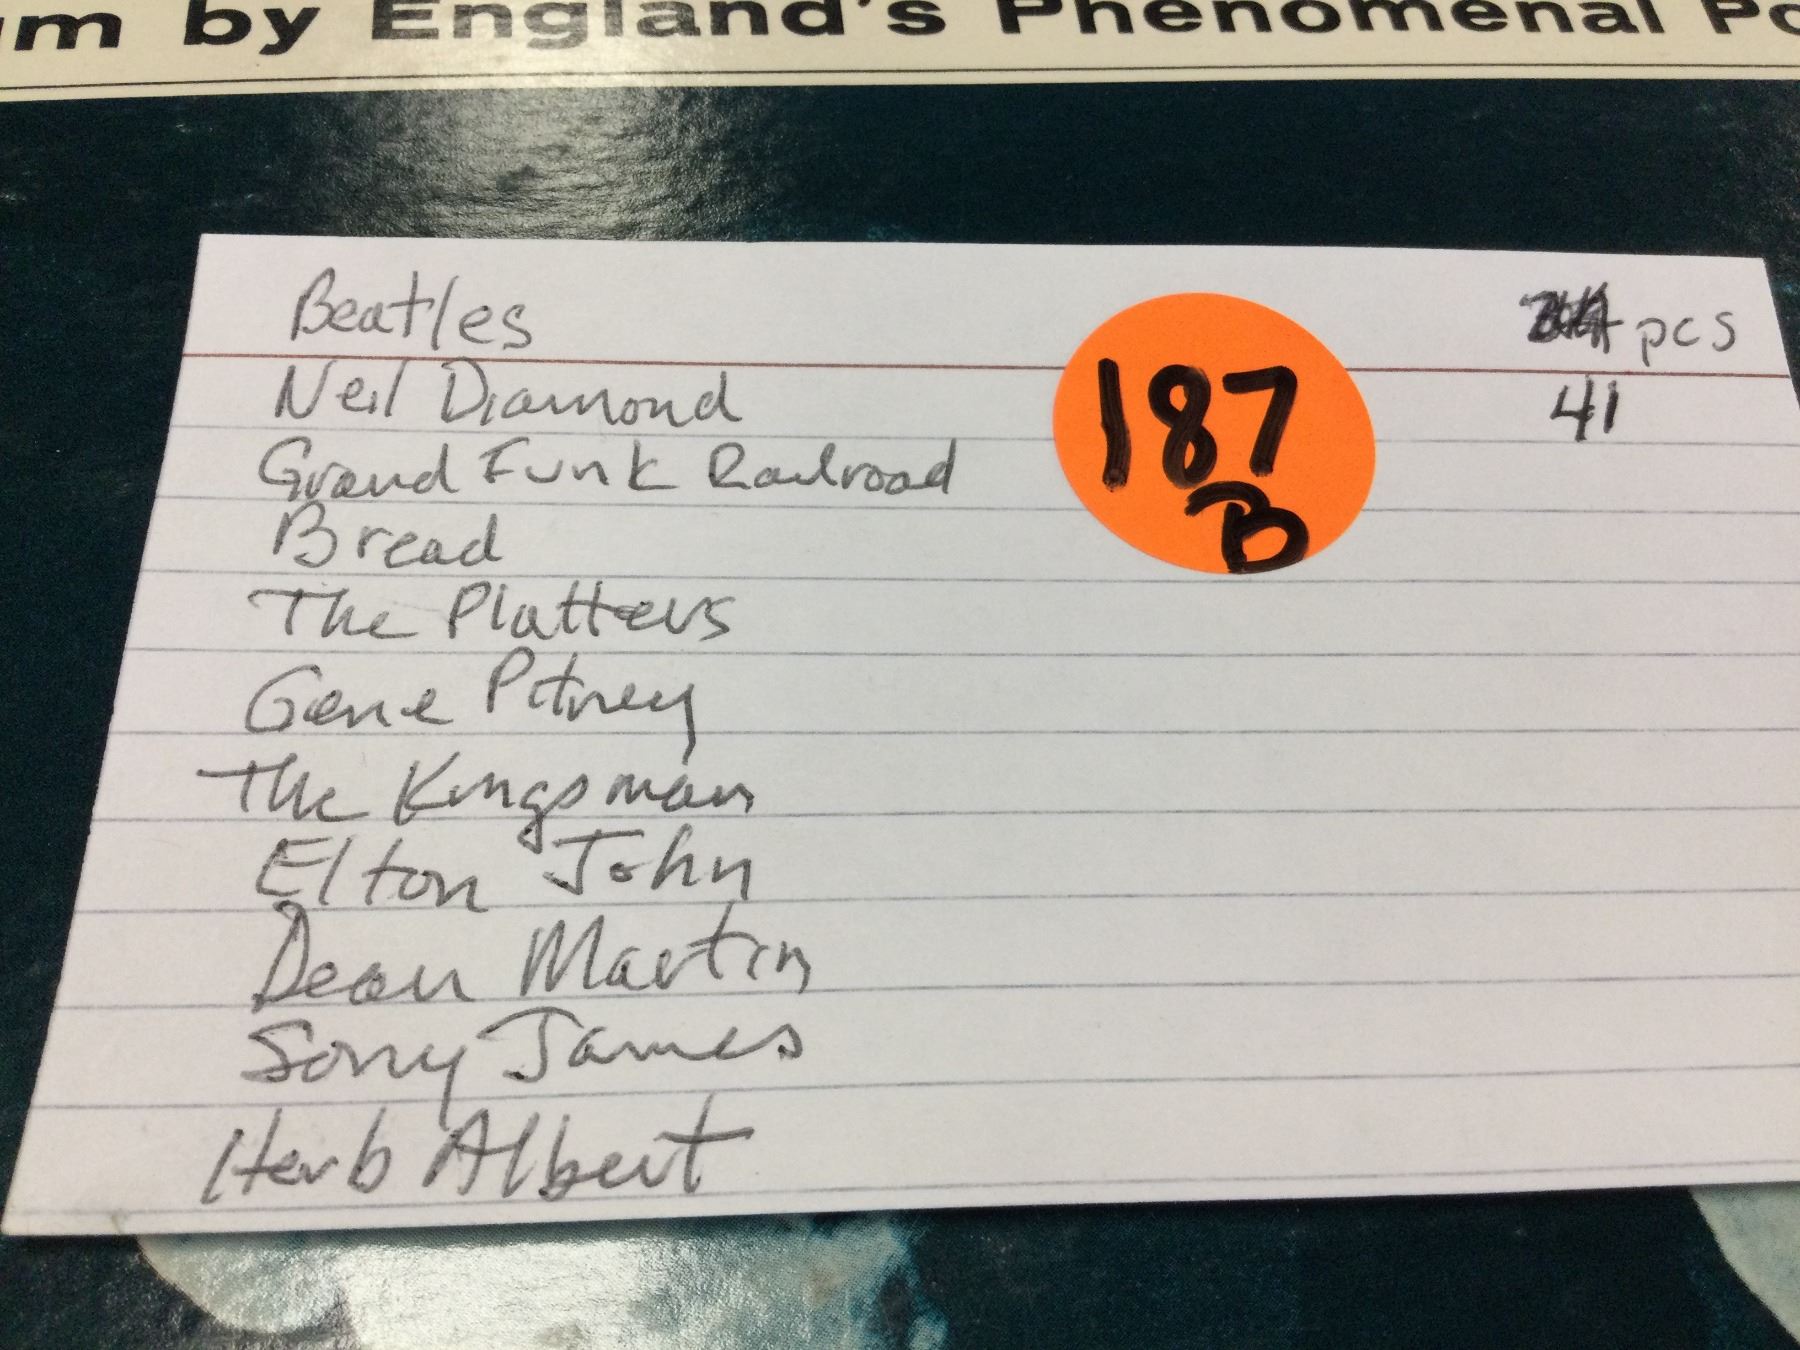 um by England's Phenomenal Po
Beatles
pcs
Neil Diamond
41
187
B
Grand Funk Railroad
Bread
The Platters
Gene Pitney
The Kingsman
Elton John
Dean Martin
Sony James
Herb Albert